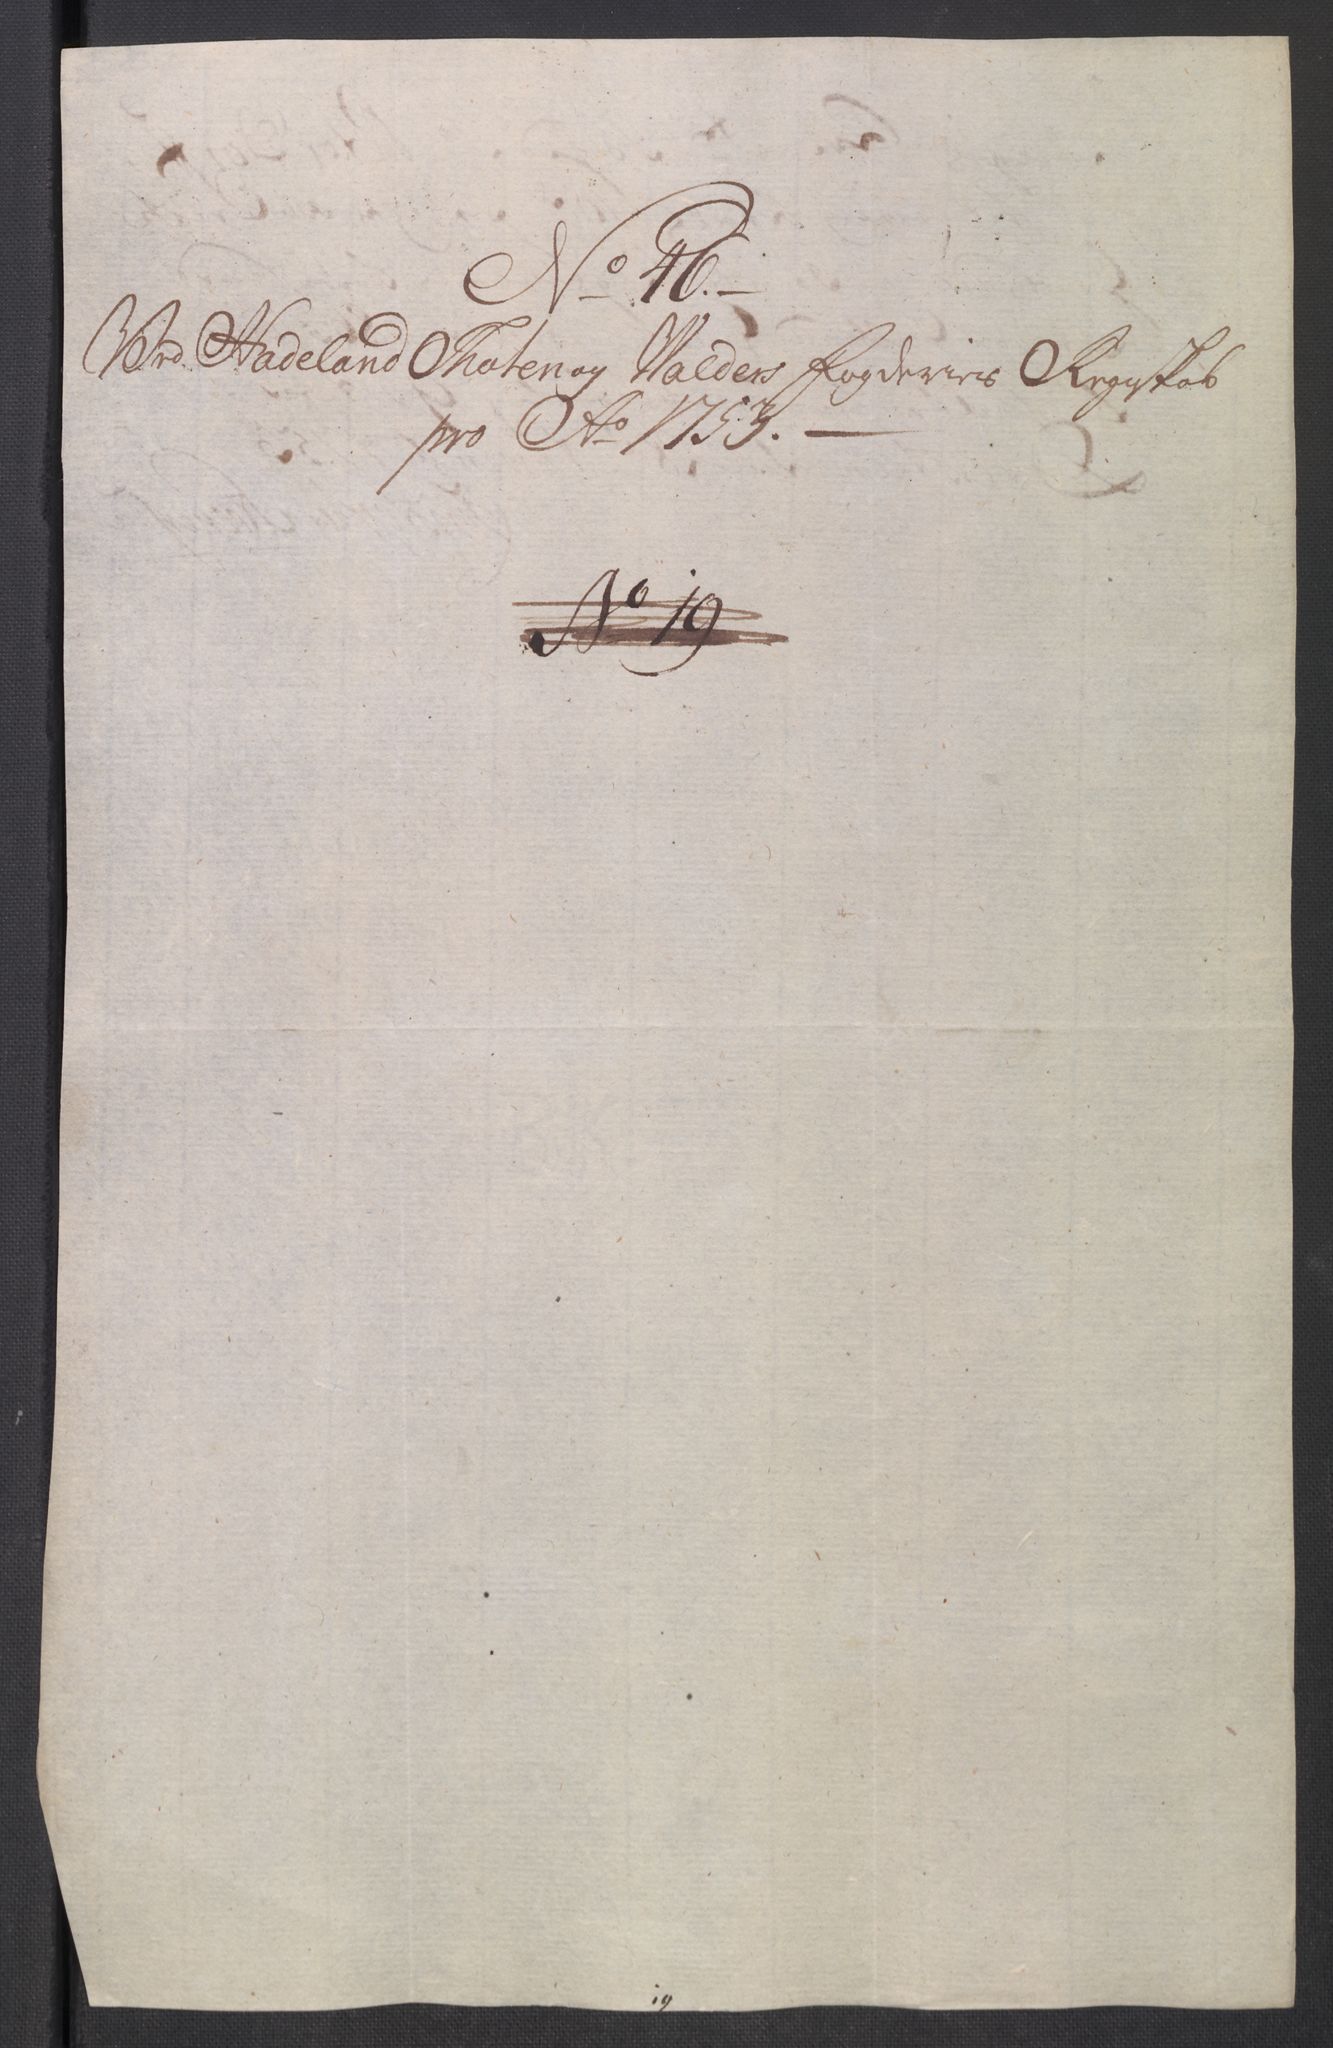 No 46.
Ved Hadeland Thoten og Walders Fogderies Regnskab
pro Ao 1753.
No 19
19